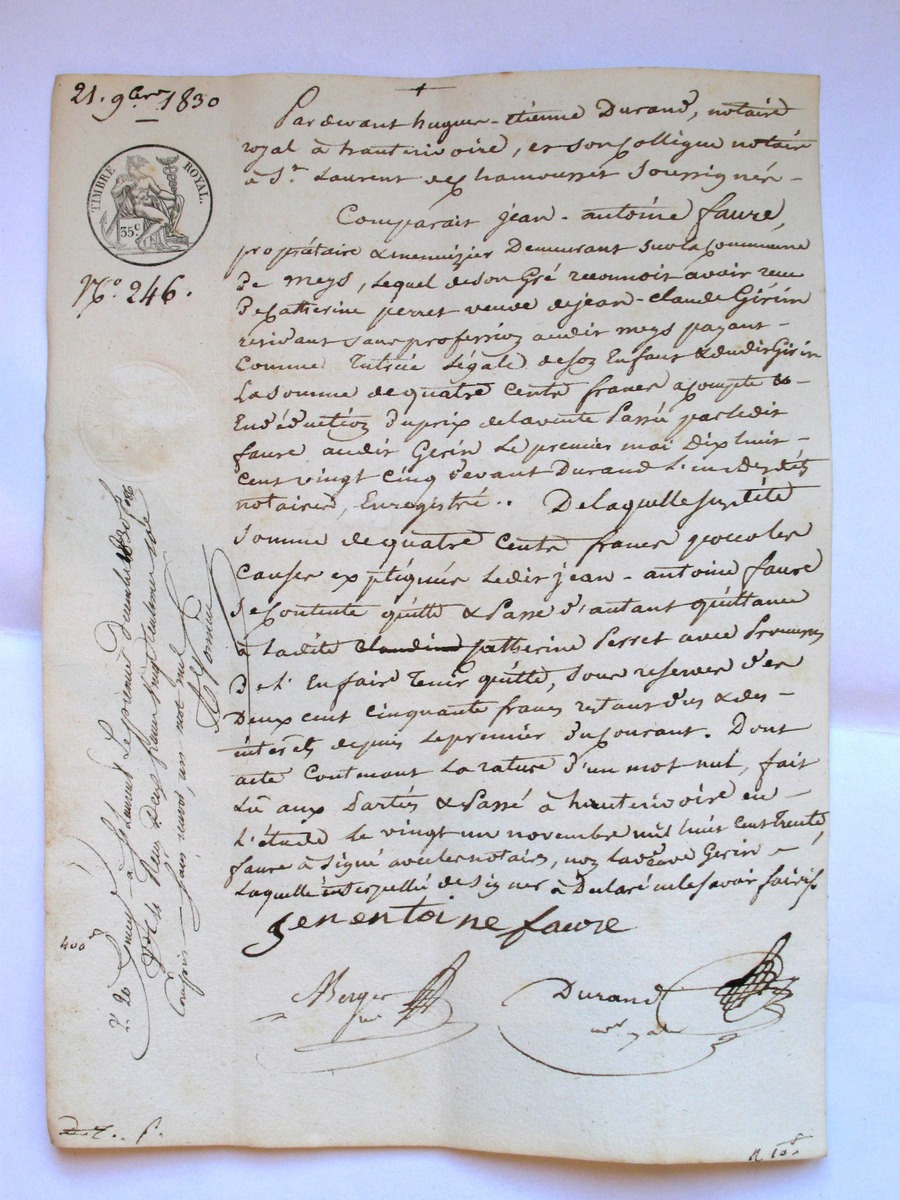 21. 9bre 1830
TIMBRE ROYAL.
35.c
No. 246.
Pardevant hugues-étienne Durand, notaire
royal à hauterivoire, et son Collégue notaire
à St. Laurent de Chamousset Soussignés-
Comparait jean-antoine faure,
propriétaire & menuizier Demeurant sur la Commune
De meys, lequel de son Gré reconnoit avoir reçu
De Catherine perret veuve de jean-Claude Girin
résidant sans profession audit meys payant-
Comme Tutrice Légale de ses Enfans & dudit Girin
La Somme de quatre Cents francs acompte &-
En déduction du prix de la vente Passée par ledit
faure audit Gerin Le premier mai Dix huit-
Cent vingt Cinq devant Durand L'un desdits
notaires, Enregistré.. De laquelle susdite
Somme de quatre Cents francs pour les
Causes expliquées Ledit jean-antoine faure
Se Contente quitte & Passe d'autant quittance
à Ladite Claudine Catherine Perret avec Promesses
De L'En faire Tenir quitte, Sous reserves des
Deux cent Cinquante francs restans dus & des-
interets depuis Le premier Du Courant. Dont
acte Contenant La rature d'un mot nul, fait
Lu aux Parties & Passé à hauterivoire en-
L'étude Le vingt un novembre mil huit Cent Trente,
faure à Signé avec les notaires, non La veuve Gerin-
Laquelle interpellée de Signer à Déclaré ne le savoir faire
jenentoine faure
Berger
Durand
St Laurent Le premier Décembre 1830
Reçu Deux francs
un mot nul
400